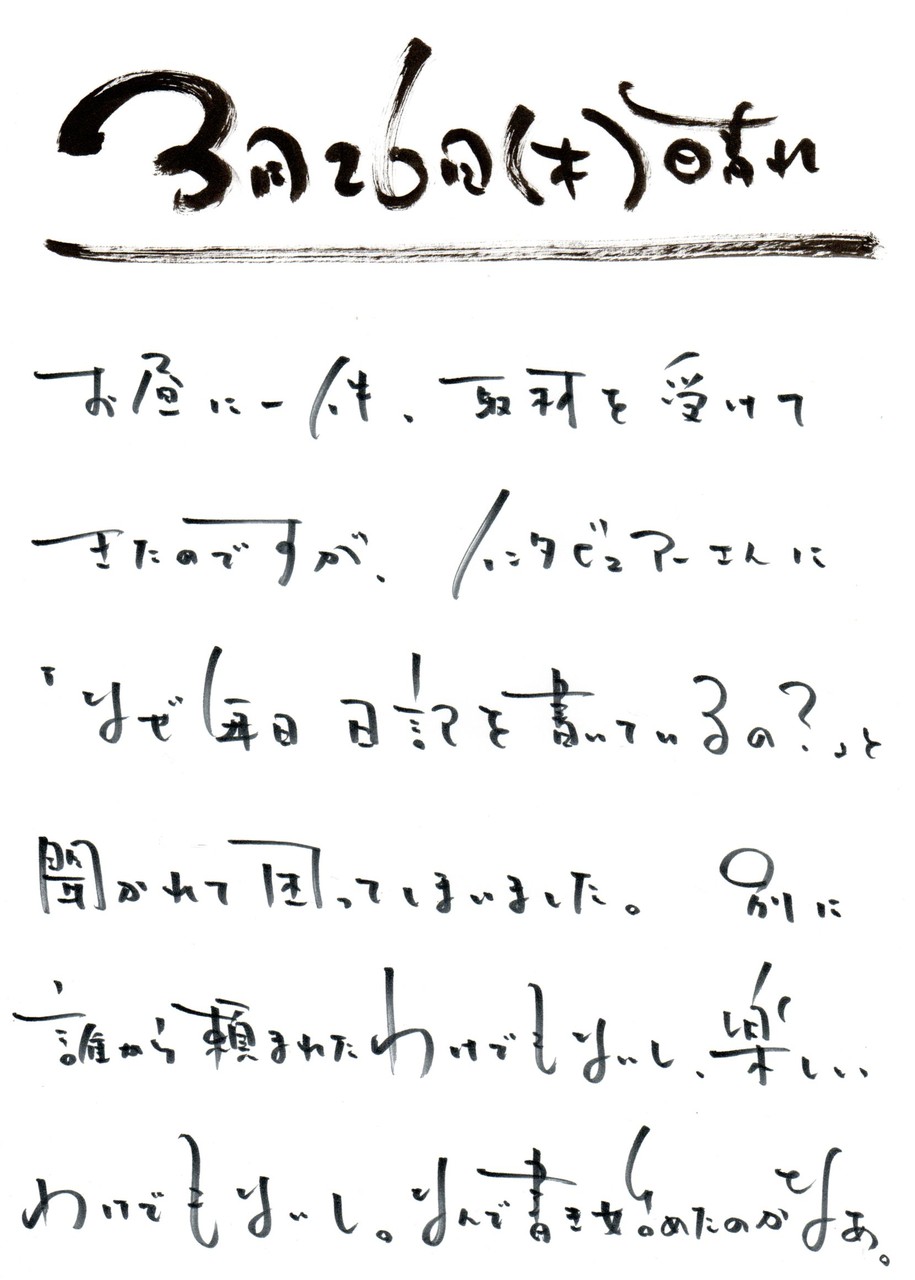 3月26日(木)晴れ
お昼に一件、取材を受けて
きたのですが、インタビュアーさんに
「なぜ毎日日記を書いているの?」と
聞かれて困ってしまいました。別に
誰から頼まれたわけでもないし、楽しい
わけでもないし。なんで書き始めたのかなぁ。